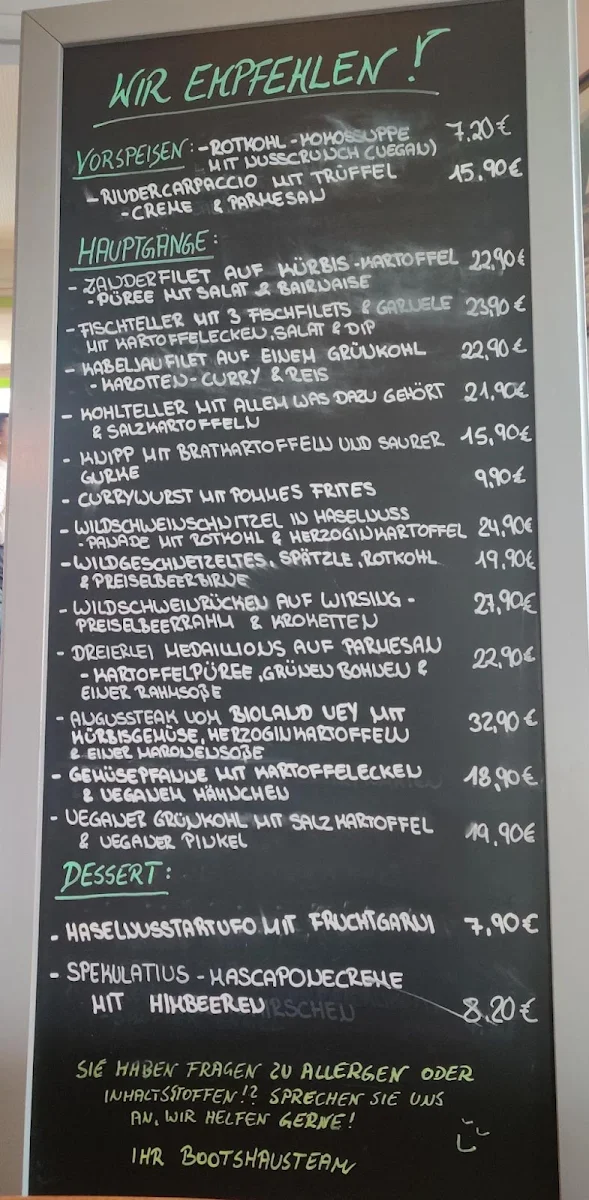 WIR EMPFEHLEN!
VORSPEISEN: - ROTKOHL - KOKOSSUPPE 7,20 €
MIT NUSSCRUNCH (VEGAN)
- RINDERCARPACCIO MIT TRÜFFEL 15,90 €
- CREME & PARMESAN
HAUPTGÄNGE:
- ZANDERFILET AUF KÜRBIS - KARTOFFEL 22,90 €
- PÜREE MIT SALAT & BAIRNAISE
- FISCHTELLER MIT 3 FISCHFILETS & GARNELE 23,90 €
MIT KARTOFFELECKEN, SALAT & DIP
- KABELJAUFILET AUF EINEM GRÜNKOHL 22,90 €
- KAROTTEN - CURRY & REIS
- KOHLTELLER MIT ALLEM WAS DAZU GEHÖRT 21,90 €
& SALZKARTOFFELN
- KNIPP MIT BRATKARTOFFELN UND SAURER 15,90 €
GURKE
- CURRYWURST MIT POMMES FRITES 9,90 €
- WILDSCHWEINSCHNITZEL IN HASELNUSS
- PANADE MIT ROTKOHL & HERZOGINKARTOFFEL 24,90 €
- WILDGESCHNETZELTES, SPÄTZLE, ROTKOHL 19,90 €
& PREISELBEERBIRNE
- WILDSCHWEINRÜCKEN AUF WIRSING - 27,90 €
PREISELBEERRAHM & KROKETTEN
- DREIERLEI MEDAILLIONS AUF PARMESAN 22,90 €
- KARTOFFELPÜREE, GRÜNEN BOHNEN &
EINER RAHMSOßE
- ANGUSSTEAK VOM BIOLAND VEY MIT 32,90 €
KÜRBISGEMÜSE, HERZOGINKARTOFFELN
& EINER MARONENSOßE
- GEMÜSEPFANNE MIT KARTOFFELECKEN 18,90 €
& VEGANEM HÄHNCHEN
- VEGANER GRÜNKOHL MIT SALZKARTOFFEL 19,90 €
& VEGANER PINKEL
DESSERT:
- HASELNUSSTARTUFO MIT FRUCHTGARNI 7,90 €
- SPEKULATIUS - MASCAPONECREME
MIT HIMBEEREN 8,20 €
SIE HABEN FRAGEN ZU ALLERGEN ODER
INHALTSSTOFFEN!? SPRECHEN SIE UNS
AN, WIR HELFEN GERNE!
IHR BOOTSHAUSTEAM